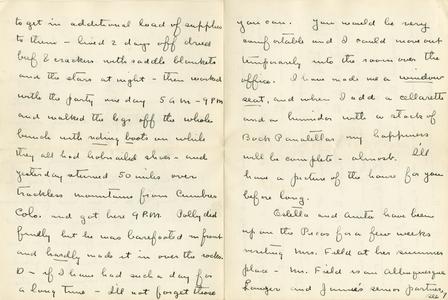 to get in additional load of supplies
to them - lived 2 days off dried
beef & crackers with saddle blankets
and the stars at night - then worked
with the party one day 5 AM - 9 PM
and walked the legs off the whole
bunch with riding boots on while
they all had hobnailed shoes - and
yesterday returned 50 miles over
trackless mountains from Cumbres
Colo. and got here 9 P.M. Polly did
finely but he was barefooted in front
and hardly made it in over the rocks.
D - if I have had such a day for
a long time - I'll not forget those
you can. You would be very
comfortable and I could move out
temporarily into the room over the
office. I have made me a window
seat, and when I add a cellarette
and a humidor with a stack of
Bock Panatellas my happiness
will be complete - almost. I'll
have a picture of the house for you
before long.
Estella and Anita have been
up on the Pecos for a few weeks
visiting Mrs. Field at her summer
place - Mr. Field is an Albuquerque
Lawyer and Jamie's senior partner,